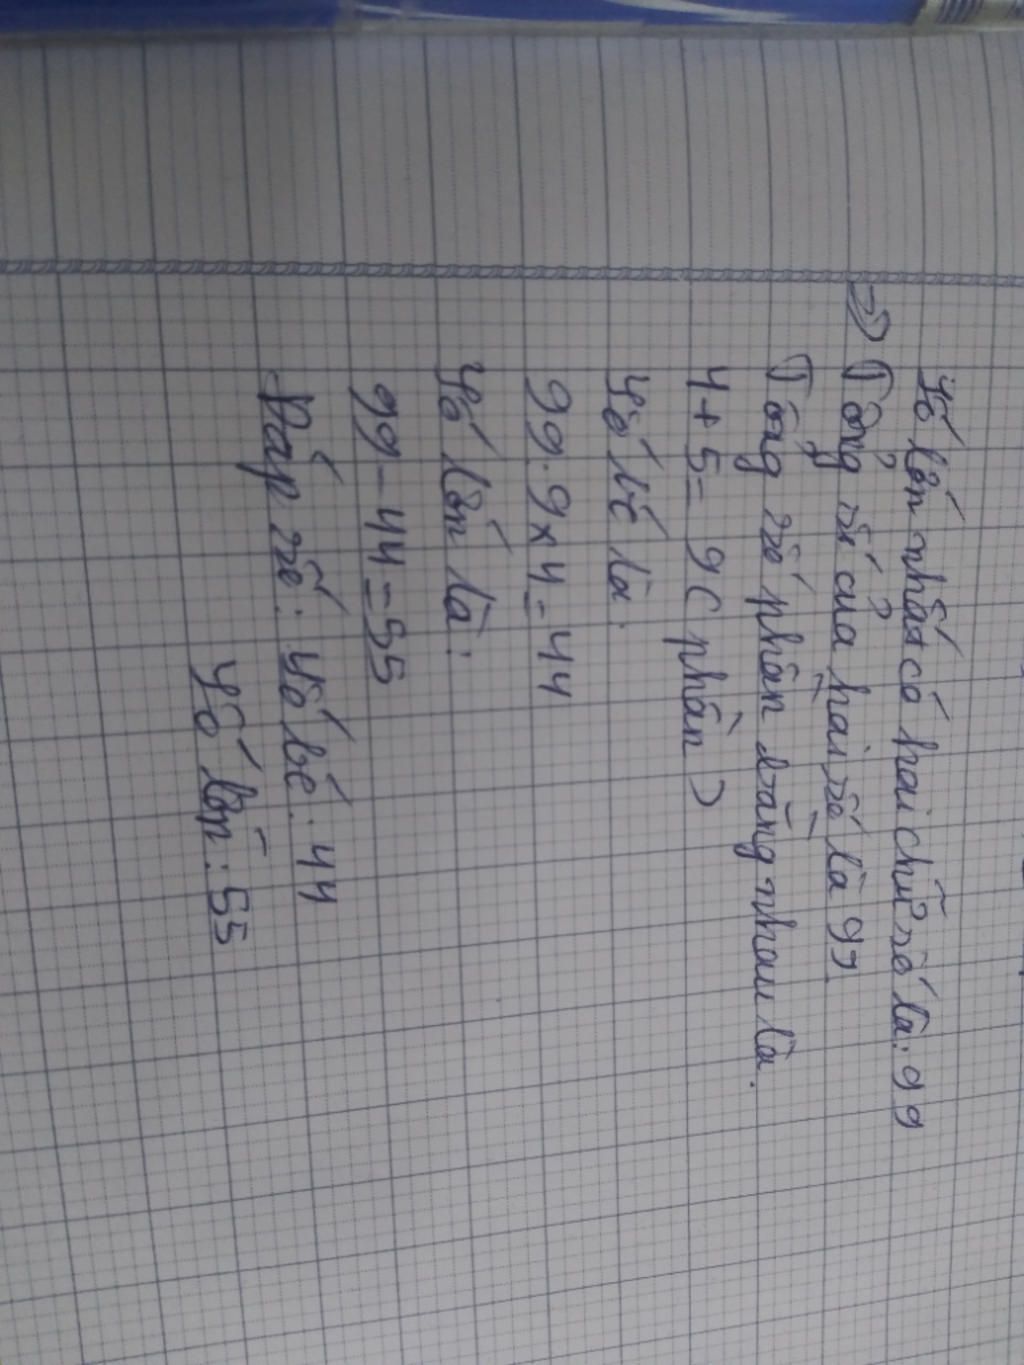 Số lớn nhất có hai chữ số là: 99
=> Tổng số của hai số là 99
Tổng số phần bằng nhau là.
4+5= 9 ( phần )
Số bé là.
99:9x4=44
Số lớn là:
99-44=55
Đáp số: Số bé: 44
Số lớn: 55